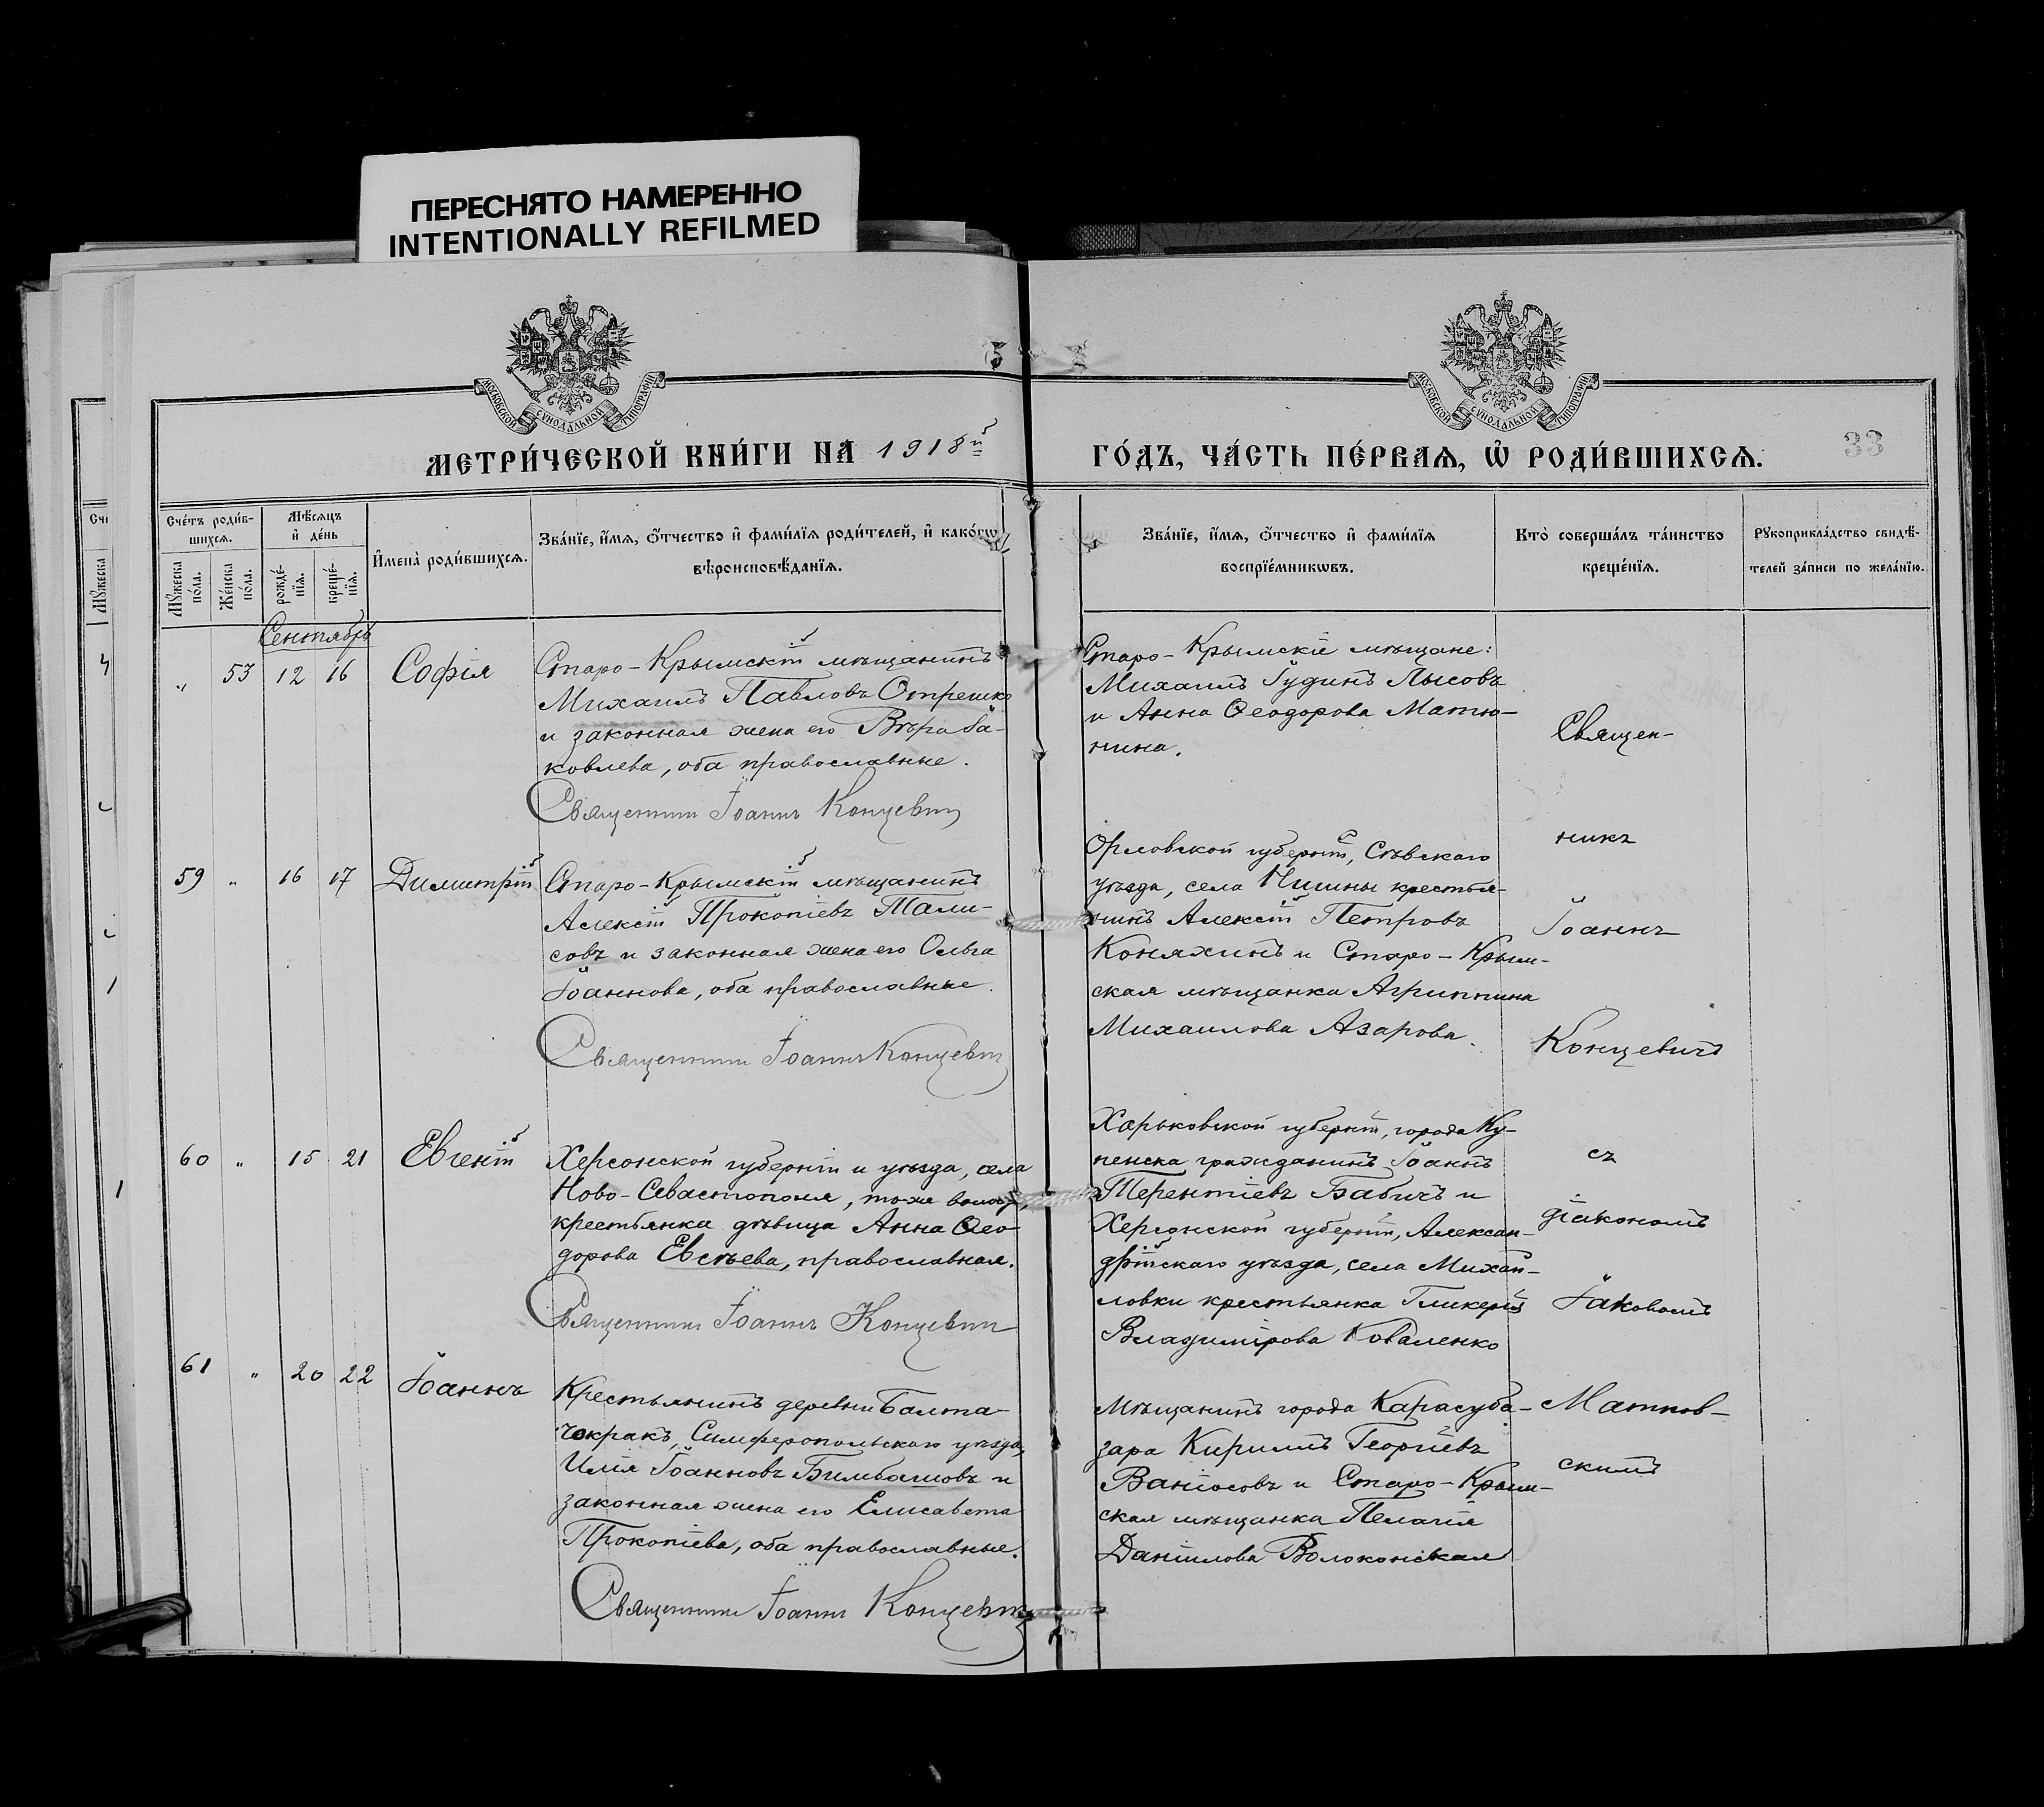 ПЕРЕСНЯТО НАМЕРЕННО
INTENTIONALLY REFILMED
МОСКОВСКОЙ СѴНОДАЛЬНОЙ ТИПОГРАФІИ
МОСКОВСКОЙ СѴНОДАЛЬНОЙ ТИПОГРАФІИ
МЕТРИ́ЧЕСКОЙ КНИ́ГИ НА 1918й
ГО́ДЪ, ЧА́СТЬ ПЕ́РВАѦ, Ѡ҆ РОДИ́ВШИХСѦ.
33
Сче́тъ роди́в-
шихсѧ.
Мѣ́сѧцъ
и҆ де́нь
Мꙋ́жеска по́ла.
Же́нска по́ла.
рожде́-
нїѧ.
креще́-
нїѧ.
И҆мена̀ роди́вшихсѧ.
Зва́нїе, и҆́мѧ, ѻ҆́тчество и҆ фами́лїѧ роди́телей, и҆ како́гѡ
вѣроисповѣ́данїѧ.
Зва́нїе, и҆́мѧ, ѻ҆́тчество и҆ фами́лїѧ
воспрїе́мникѡвъ.
Кто̀ соверша́лъ та́инство
креще́нїѧ.
Рꙋкоприкла́дство свидѣ́-
телей за́писи по жела́нїю.
Сентябрь
„ 53 12 16 Софія
Старо-Крымскій мѣщанинъ
Михаилъ Павловъ Отрешко
и законная жена его Вѣра Іа-
ковлева, оба православные.
Священникъ Іоаннъ Концевич
Старо-Крымскіе мѣщане:
Михаилъ Іудинъ Лысовъ
и Анна Ѳеодорова Матю-
нина.
59 „ 16 17 Димитрій
Старо-Крымскій мѣщанинъ
Алексій Прокопіевъ Тали-
совъ и законная жена его Ольга
Іоаннова, оба православные.
Священникъ Іоаннъ Концевич
Орловской губерніи, Сѣвскаго
уѣзда, села крестья-
нинъ Алексій Петровъ
Коняхинъ и Старо-Крым-
ская мѣщанка Агриппина
Михаилова Азарова.
60 „ 15 21 Евгеній
Херсонской губерніи и уѣзда, села
Ново-Севастополя, той-же волос.,
крестьянка дѣвица Анна Ѳео-
дорова Евсѣева, православная.
Священникъ Іоаннъ Концевич
Харьковской губерніи, города Ку-
пенска гражданинъ Іоаннъ
Терентіевъ Бабичъ и
Херсонской губерніи, Алексан-
дрійскаго уѣзда, села Михай-
ловки крестьянка Гликерія
Владимірова Коваленко
61 „ 20 22 Іоаннъ
Крестьянинъ деревни Балта-
Чокракъ, Симферопольскаго уѣзда,
Илія Іоанновъ Бимбашовъ и
законная жена его Елисавета
Прокопіева, оба православные.
Священникъ Іоаннъ Концевич
Мѣщанинъ города Карасуба-
зара Кириллъ Георгіевъ
Ваніосовъ и Старо-Крым-
ская мѣщанка Пелагія
Даніилова Волоконская
Священ-
никъ
Іоаннъ
Концевичъ
съ
діакономъ
Іаковомъ
Матков-
скимъ